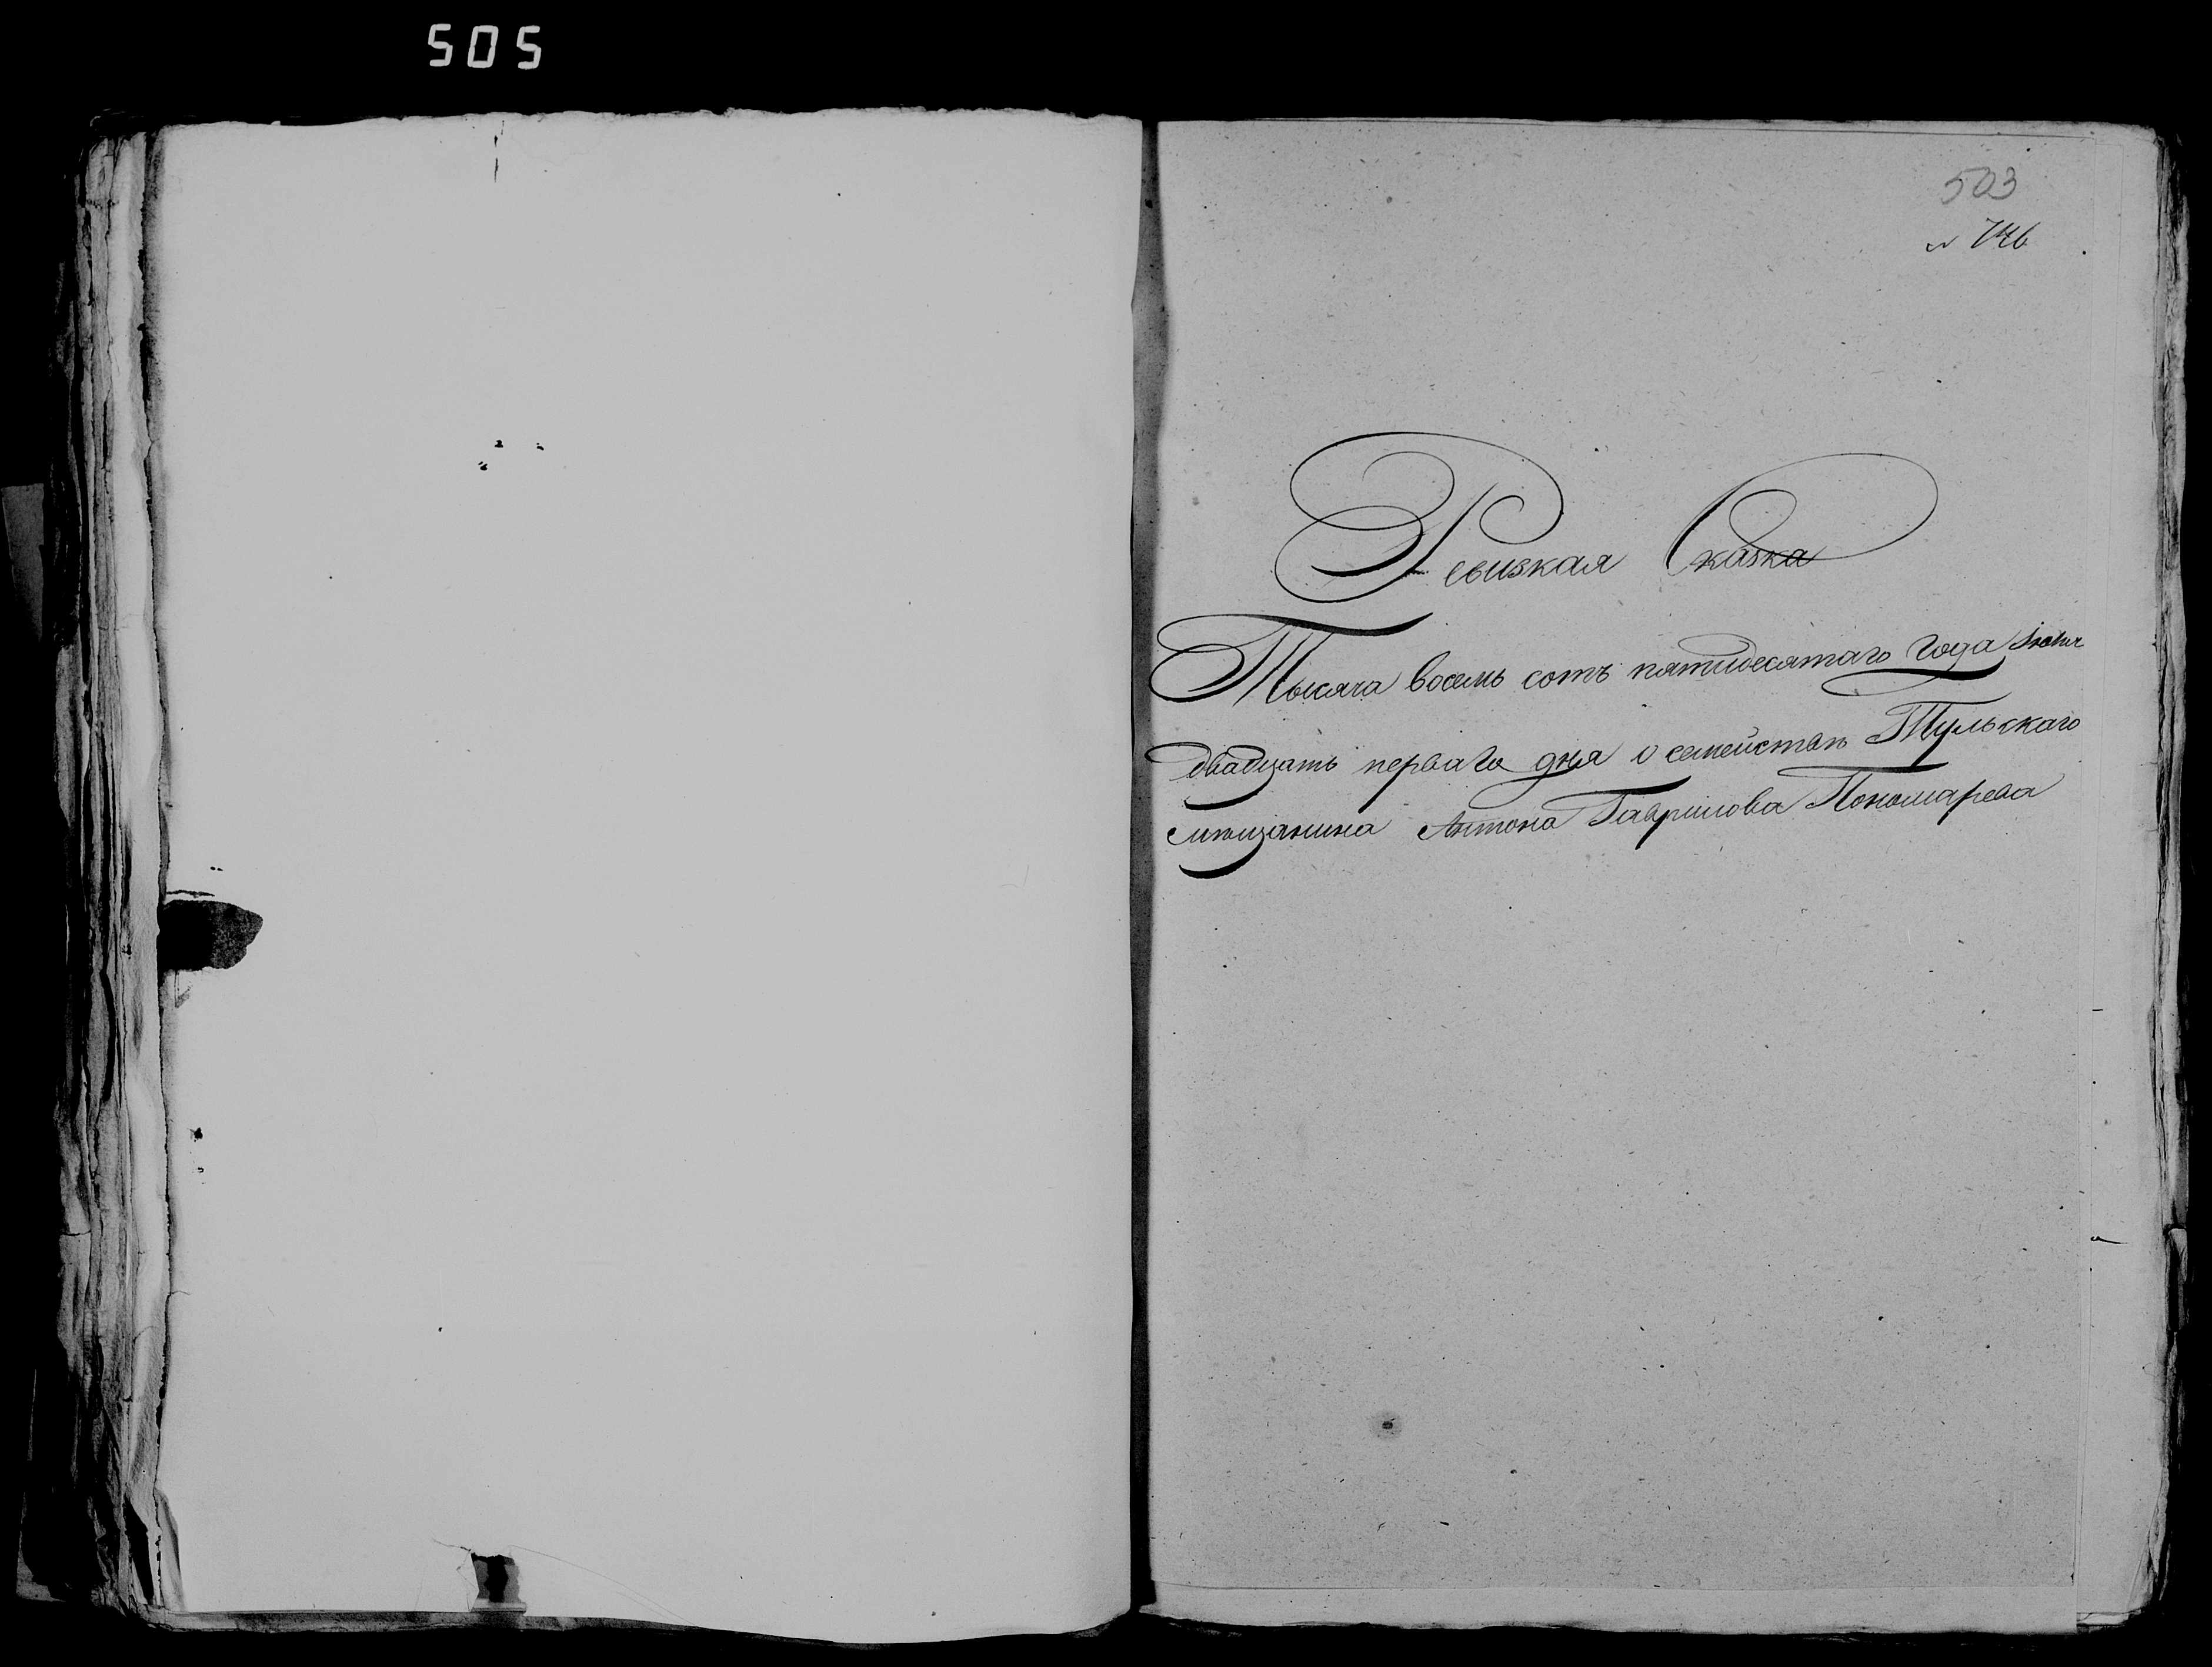 505
503
№ 746
Ревизкая Сказка
Тысяча восемь сотъ пятидесятаго года
двадцать перваго дня о семействѣ Тульскаго
мѣщанина Антона Гаврилова Пономарева